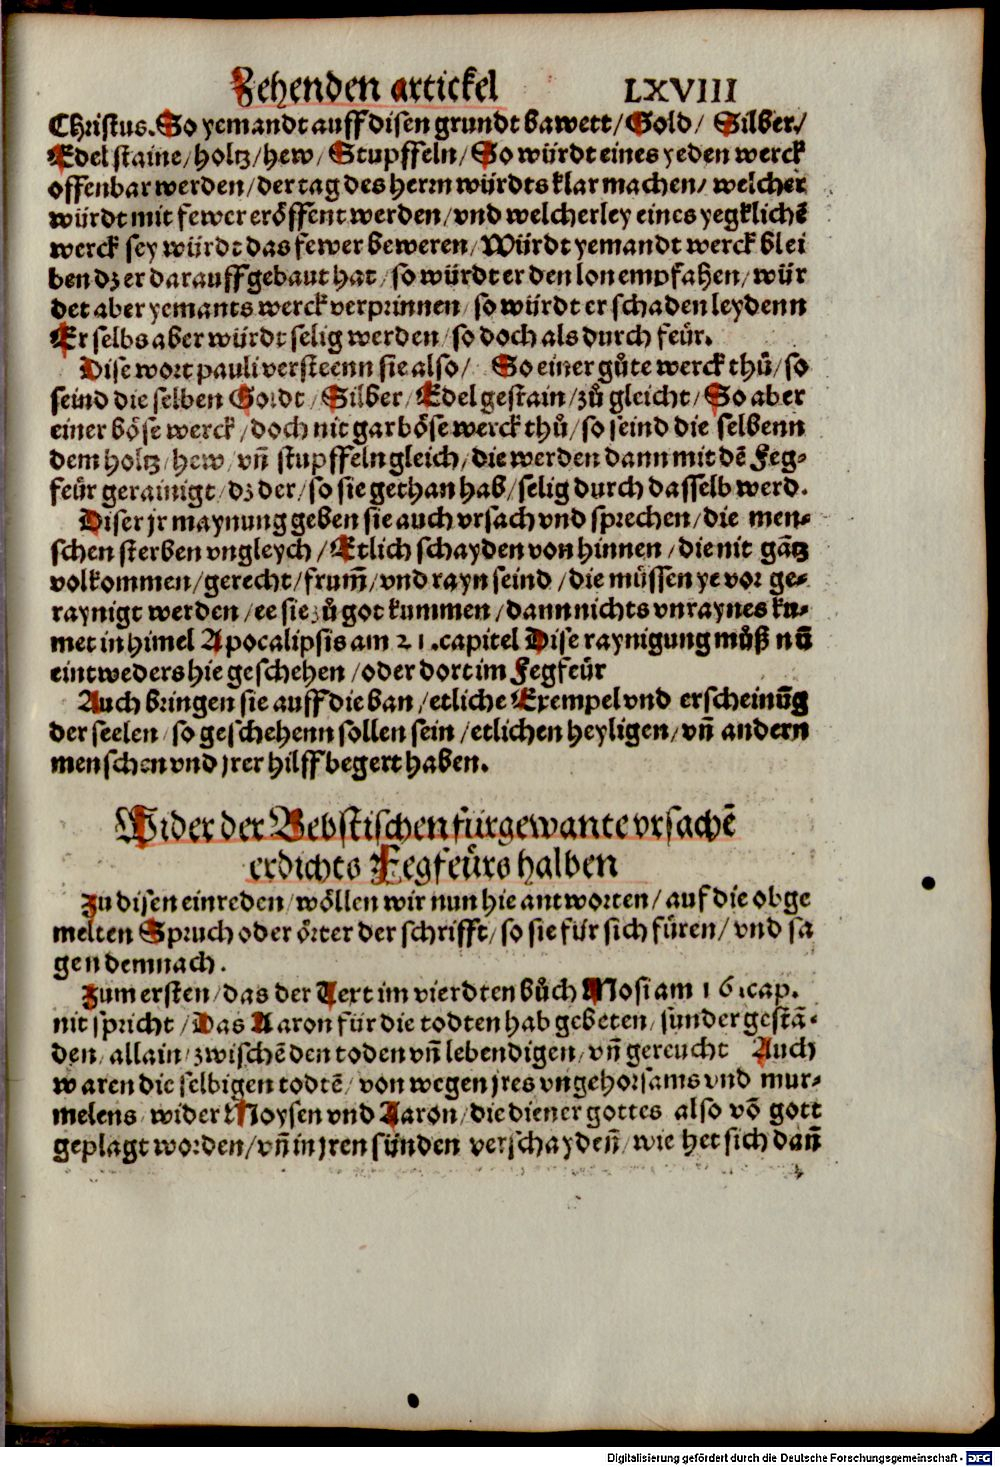 Zehenden artickel LXVIII
Christus. So yemandt auff disen grundt bawett / Gold / Silber /
Edel staine / holtz / hew / Stupffeln / So würdt eines yeden werck
offenbar werden / der tag des herrn würdts klar machen / welcher
würdt mit fewer eröffent werden / vnd welcherley eines yegklichē
werck sey würdt das fewer beweren / Würdt yemandt werck blei
ben dz er darauff gebaut hat / so würdt er den lon empfahen / wür
det aber yemants werck verprinnen / so würdt er schaden leydenn
Er selbs aber würdt selig werden / so doch als durch feür.
Dise wort pauli versteenn sie also / So einer gůte werck thů / so
seind die selben Goldt / Silber / Edel gestain / zů gleicht / So aber
einer böse werck / doch nit gar böse werck thů / so seind die selbenn
dem holtz / hew / vñ stupffeln gleich / die werden dann mit dē Feg-
feür gerainigt / dz der / so sie gethan hab / selig durch dasselb werd.
Diser jr maynung geben sie auch vrsach vnd sprechen / die men-
schen sterben vngleych / Etlich schayden von hinnen / die nit gātz
volkommen / gerecht / frum̄ / vnd rayn seind / die müssen ye vor ge-
raynigt werden / ee sie zů got kummen / dann nichts vnraynes ku-
met in himel Apocalipsis am 21. capitel Dise raynigung můß nū
eintweders hie geschehen / oder dort im Fegfeür
Auch bringen sie auff die ban / etliche Exempel vnd erscheinūg
der seelen / so geschehenn sollen sein / etlichen heyligen / vñ andern
menschen vnd jrer hilff begert haben.
Wider der Bebstischen fürgewante vrsachē
erdichts Fegfeürs halben
Zu disen einreden / wöllen wir nun hie antworten / auf die obge
melten Spruch oder örter der schrifft / so sie für sich füren / vnd sa
gen demnach.
Zum ersten / das der Text im vierdten bůch Mosi am 16. cap.
nit spricht / Das Aaron für die todten hab gebeten / sunder gestā-
den / allain / zwischē den toden vñ lebendigen / vñ gereucht Auch
waren die selbigen todtē / von wegen jres vngehorsams vnd mur-
melens / wider Moysen vnd Aaron / die diener gottes also vō gott
geplagt worden / vñ in jren sünden verschaydeñ / wie het sich dañ
Digitalisierung gefördert durch die Deutsche Forschungsgemeinschaft - DFG